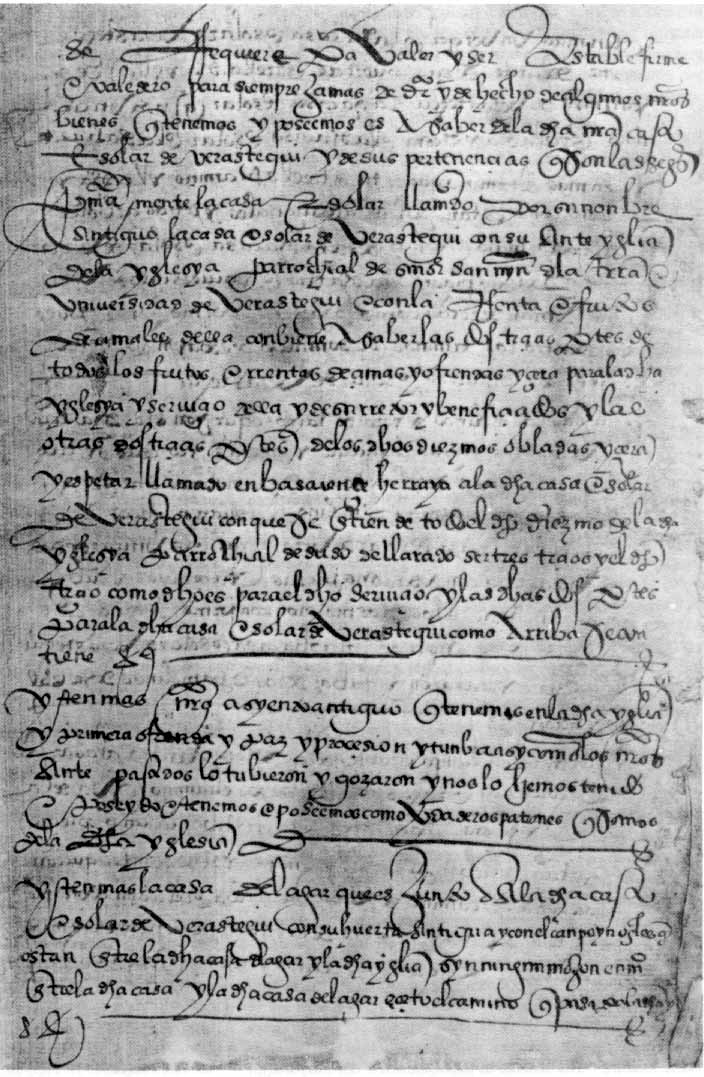 se Requiere Pa Valer y ser Estable firme
E valedero para siempre jamas de dro y de hecho de algunos nros
bienes q tenemos y poseemos es A saber dela dha nra casa
E solar de verastegui y de sus pertenencias q son las sigtes
Prima mente la casa E solar llamdo Por su nonbre
Antiguo la casa e solar de Verastegui con su Ante yglia
dela yglesya parrochial de señor san mrn dla trra E
Universidad de Verastegui E con la Renta E frutos
decimales della conbiene A saber las dos tras Ptes de
todos los frutos E rrentas decimas y ofrendas y cera para la dha
yglesya y serviçio della y de su rretor y beneficiados y las
otras dos tras Ptes de los dhos diezmos obladas y cera
y espetar llamado en bascuence herraya a la dha casa E solar
de Verastegui con que se Entiende todo el dho diezmo de la dha
yglesya Parrochial
terçio como dho es para el dho serviçio y las dhas dos Ptes
Para la dha casa E solar de Verastegui como Arriba se con
tiene
yten mas nro asyento antiguo q tenemos en la dha yglia
y primera ofrenda y Paz y proçesion y tunbas asy como los nros
Ante pasados lo tubieron y gozaron y nos lo hemos tenido
E Poseydo e tenemos e poseemos como Verdaderos patrones q somos
dela Dha yglesia
yten mas la casa del lagar que es Junto Dla dha casa
E solar de Verastegui con su huerta Antigua y con el canpo y nogales q
estan Entre la dha casa de lagar y la dha yglia syn ningun mojon en mo
Entre la dha casa y la dha casa de lagar eceto el camino q pasa